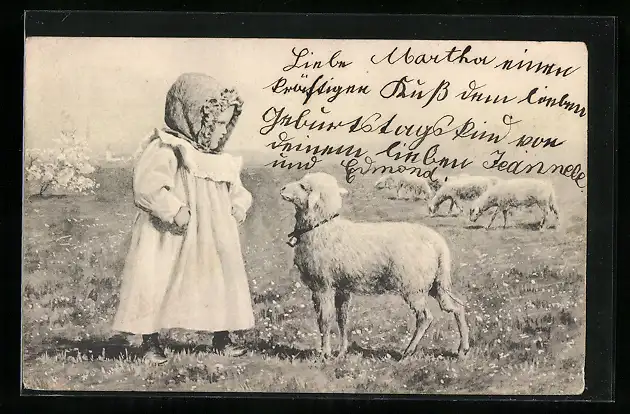 Liebe Martha einen
kräftigen Kuß dem lieben
Geburtstagskind von
deinem lieben Jeannele
und Edmond